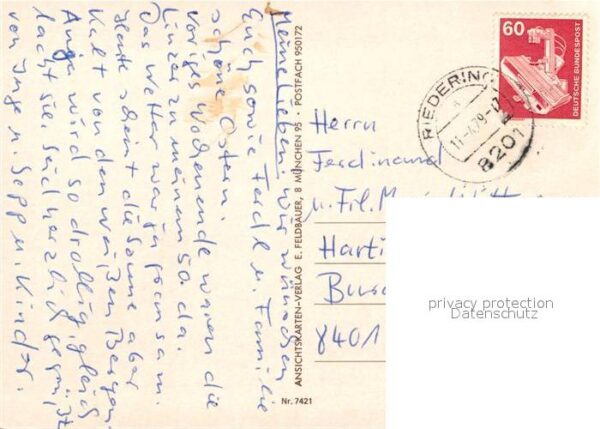 Meine Lieben! Wir wünschen
Euch sowie Ferdl u. Familie
schöne Ostern.
Voriges Wochenende waren die
Linzer zu meinem 50 da.
Das Wetter war ja grausam.
Heute scheint die Sonne aber
Kalt von den weißen Bergen.
Anga wird so drollig, gleich
lacht sie. Seid herzlich gegrüßt
von Inge u. Sepp u. Kinder.
ANSICHTSKARTEN-VERLAG E. FELDBAUER, 8 MÜNCHEN 95 · POSTFACH 950172
Nr. 7421
60
DEUTSCHE BUNDESPOST
RIEDERING
8201
Herrn
Ferdinand
u. Frl.
Harti
8401
privacy protection
Datenschutz